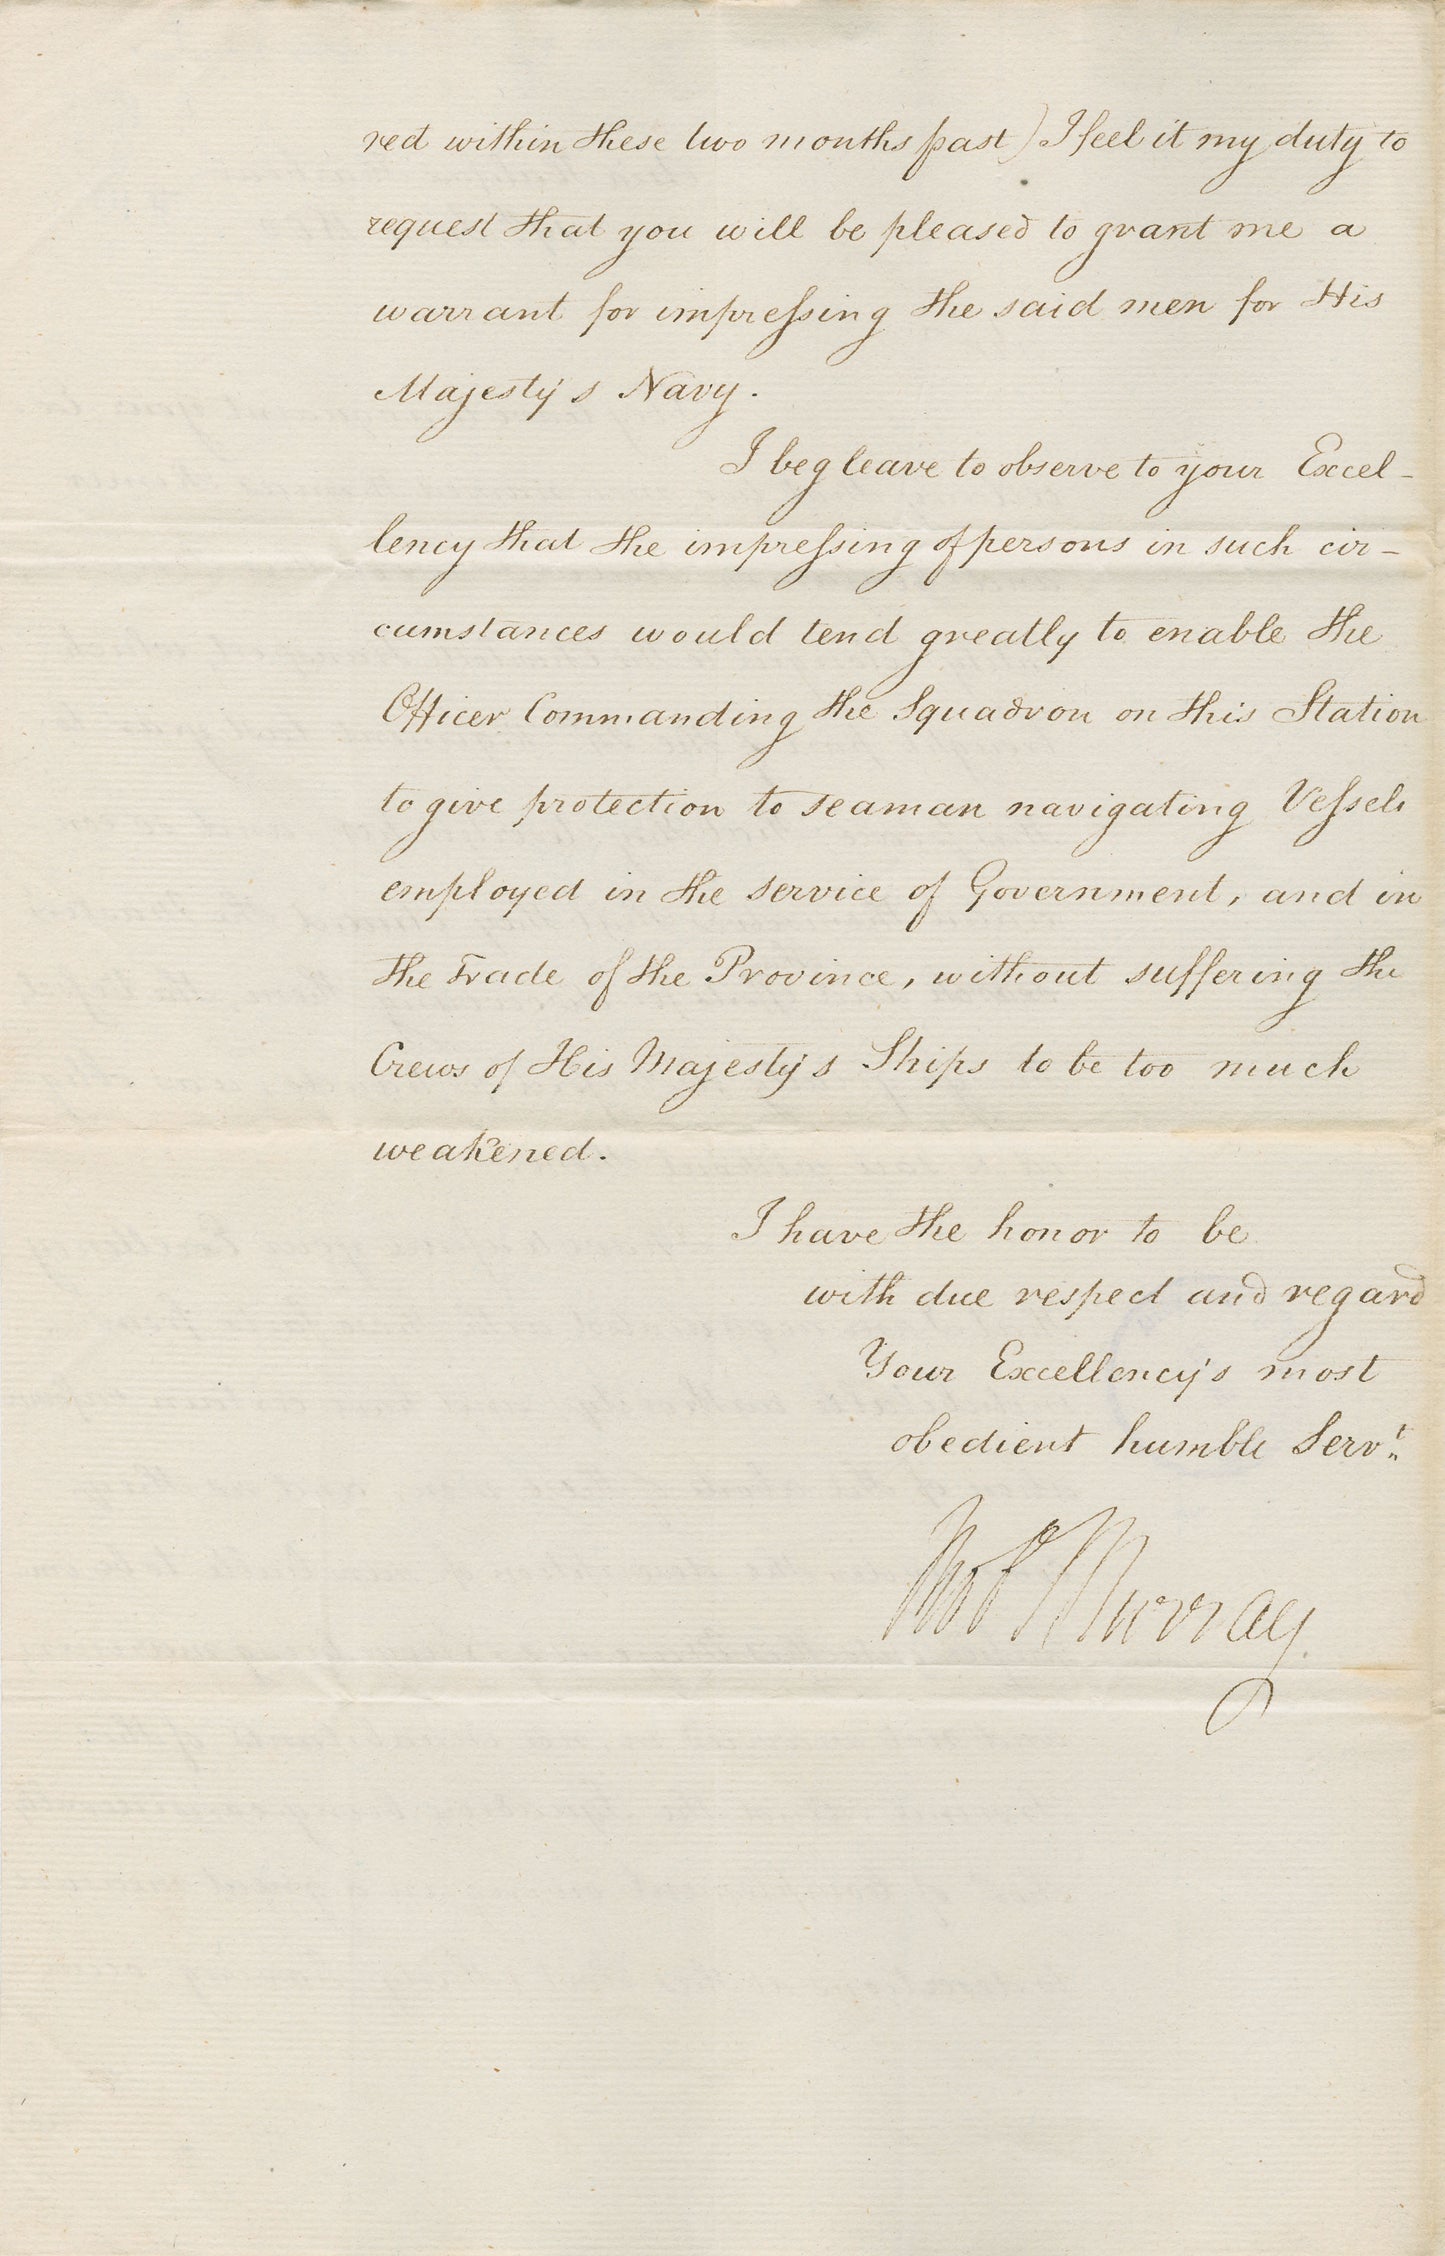 red within these two months past) I feel it my duty to
request that you will be pleased to grant me a
warrant for impreſsing the said men for His
Majesty's Navy.
I beg leave to observe to your Excel-
lency that the impreſsing of persons in such cir-
cumstances would tend greatly to enable the
Officer Commanding the Squadron on this Station
to give protection to seaman navigating Veſsels
employed in the service of Government, and in
the Trade of the Province, without suffering the
Crews of His Majesty's Ships to be too much
weakened.
I have the honor to be
with due respect and regard
Your Excellency's most
obedient humble Servt.
Murray.